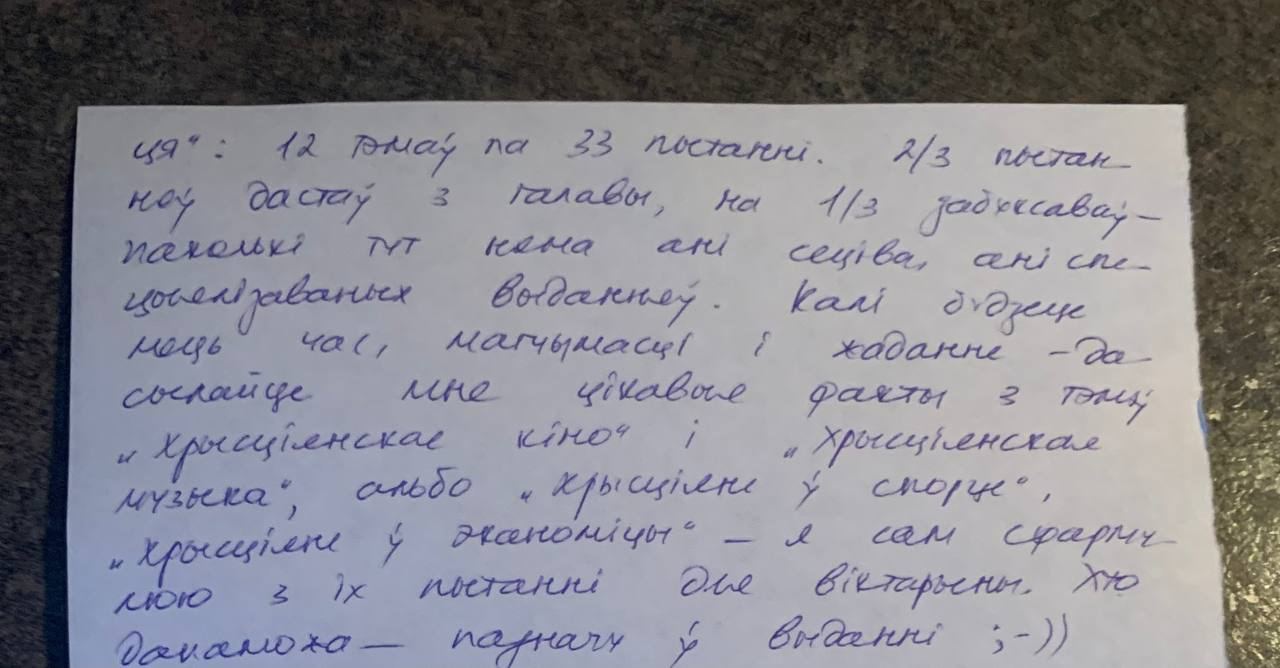 ця“: 12 тэмаў па 33 пытанні. 2/3 пытан-
няў дастаў з галавы, на 1/3 забуксаваў –
паколькі тут няма ані сеціва, ані спе-
цыялізаваных выданняў. Калі будзеце
мець час, магчымасці і жаданне – да-
сылайце мне цікавыя факты з тэмы
„Хрысціянскае кіно“ і „Хрысціянская
музыка“, альбо „Хрысціяне ў спорце“,
„Хрысціяне ў эканоміцы“ – я сам сфарму-
люю з іх пытанні для віктарыны. Хто
дапаможа – пазначу ў выданні ;-))